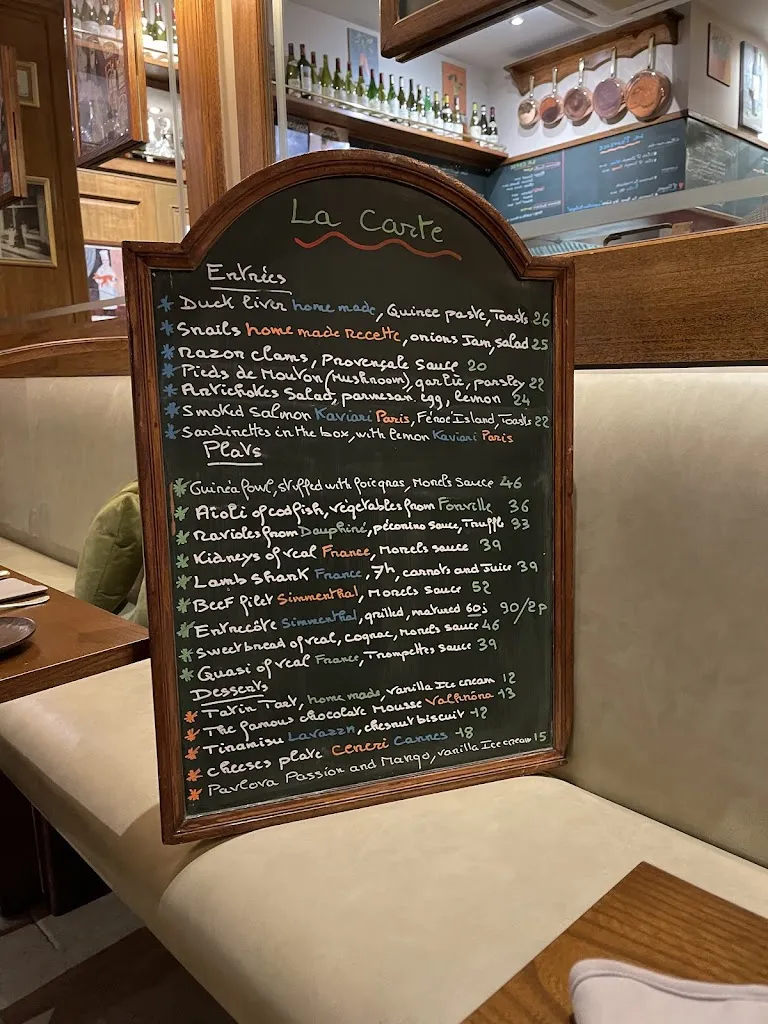 La Carte
Entrées
* Duck liver home made, Quince paste, Toasts 26
* Snails home made recette, onions Jam, salad 25
* razor clams, Provençale Sauce 20
* Pieds de Mouton (Mushroom), garlic, parsley 22
* Artichokes Salad, parmesan, egg, lemon 24
* Smoked Salmon Kaviari Paris, Féroé Island, Toasts 22
* Sardinettes in the box, with lemon Kaviari Paris
Plats
* Guinéa fowl, stuffed with foie gras, Morels Sauce 46
* Aïoli of codfish, vegetables from Forville 36
* Ravioles from Dauphiné, pécorino sauce, Truffle 33
* Kidneys of veal France, Morels sauce 39
* Lamb shank France, 7h, carrots and Juice 39
* Beef filet Simmenthal, Morels sauce 52
* Entrecôte Simmenthal, grilled, matured 60j 90/2p
* Sweetbread of veal, cognac, Morels sauce 46
* Quasi of veal France, Trompettes sauce 39
Desserts
* Tatin Tart, home made, vanilla Ice cream 12
* The famous chocolate Mousse Valhrôna 13
* Tiramisu Lavazza, chesnut biscuit 12
* cheeses plate Ceneri Cannes 18
* Pavlova Passion and Mango, vanilla Ice cream 15